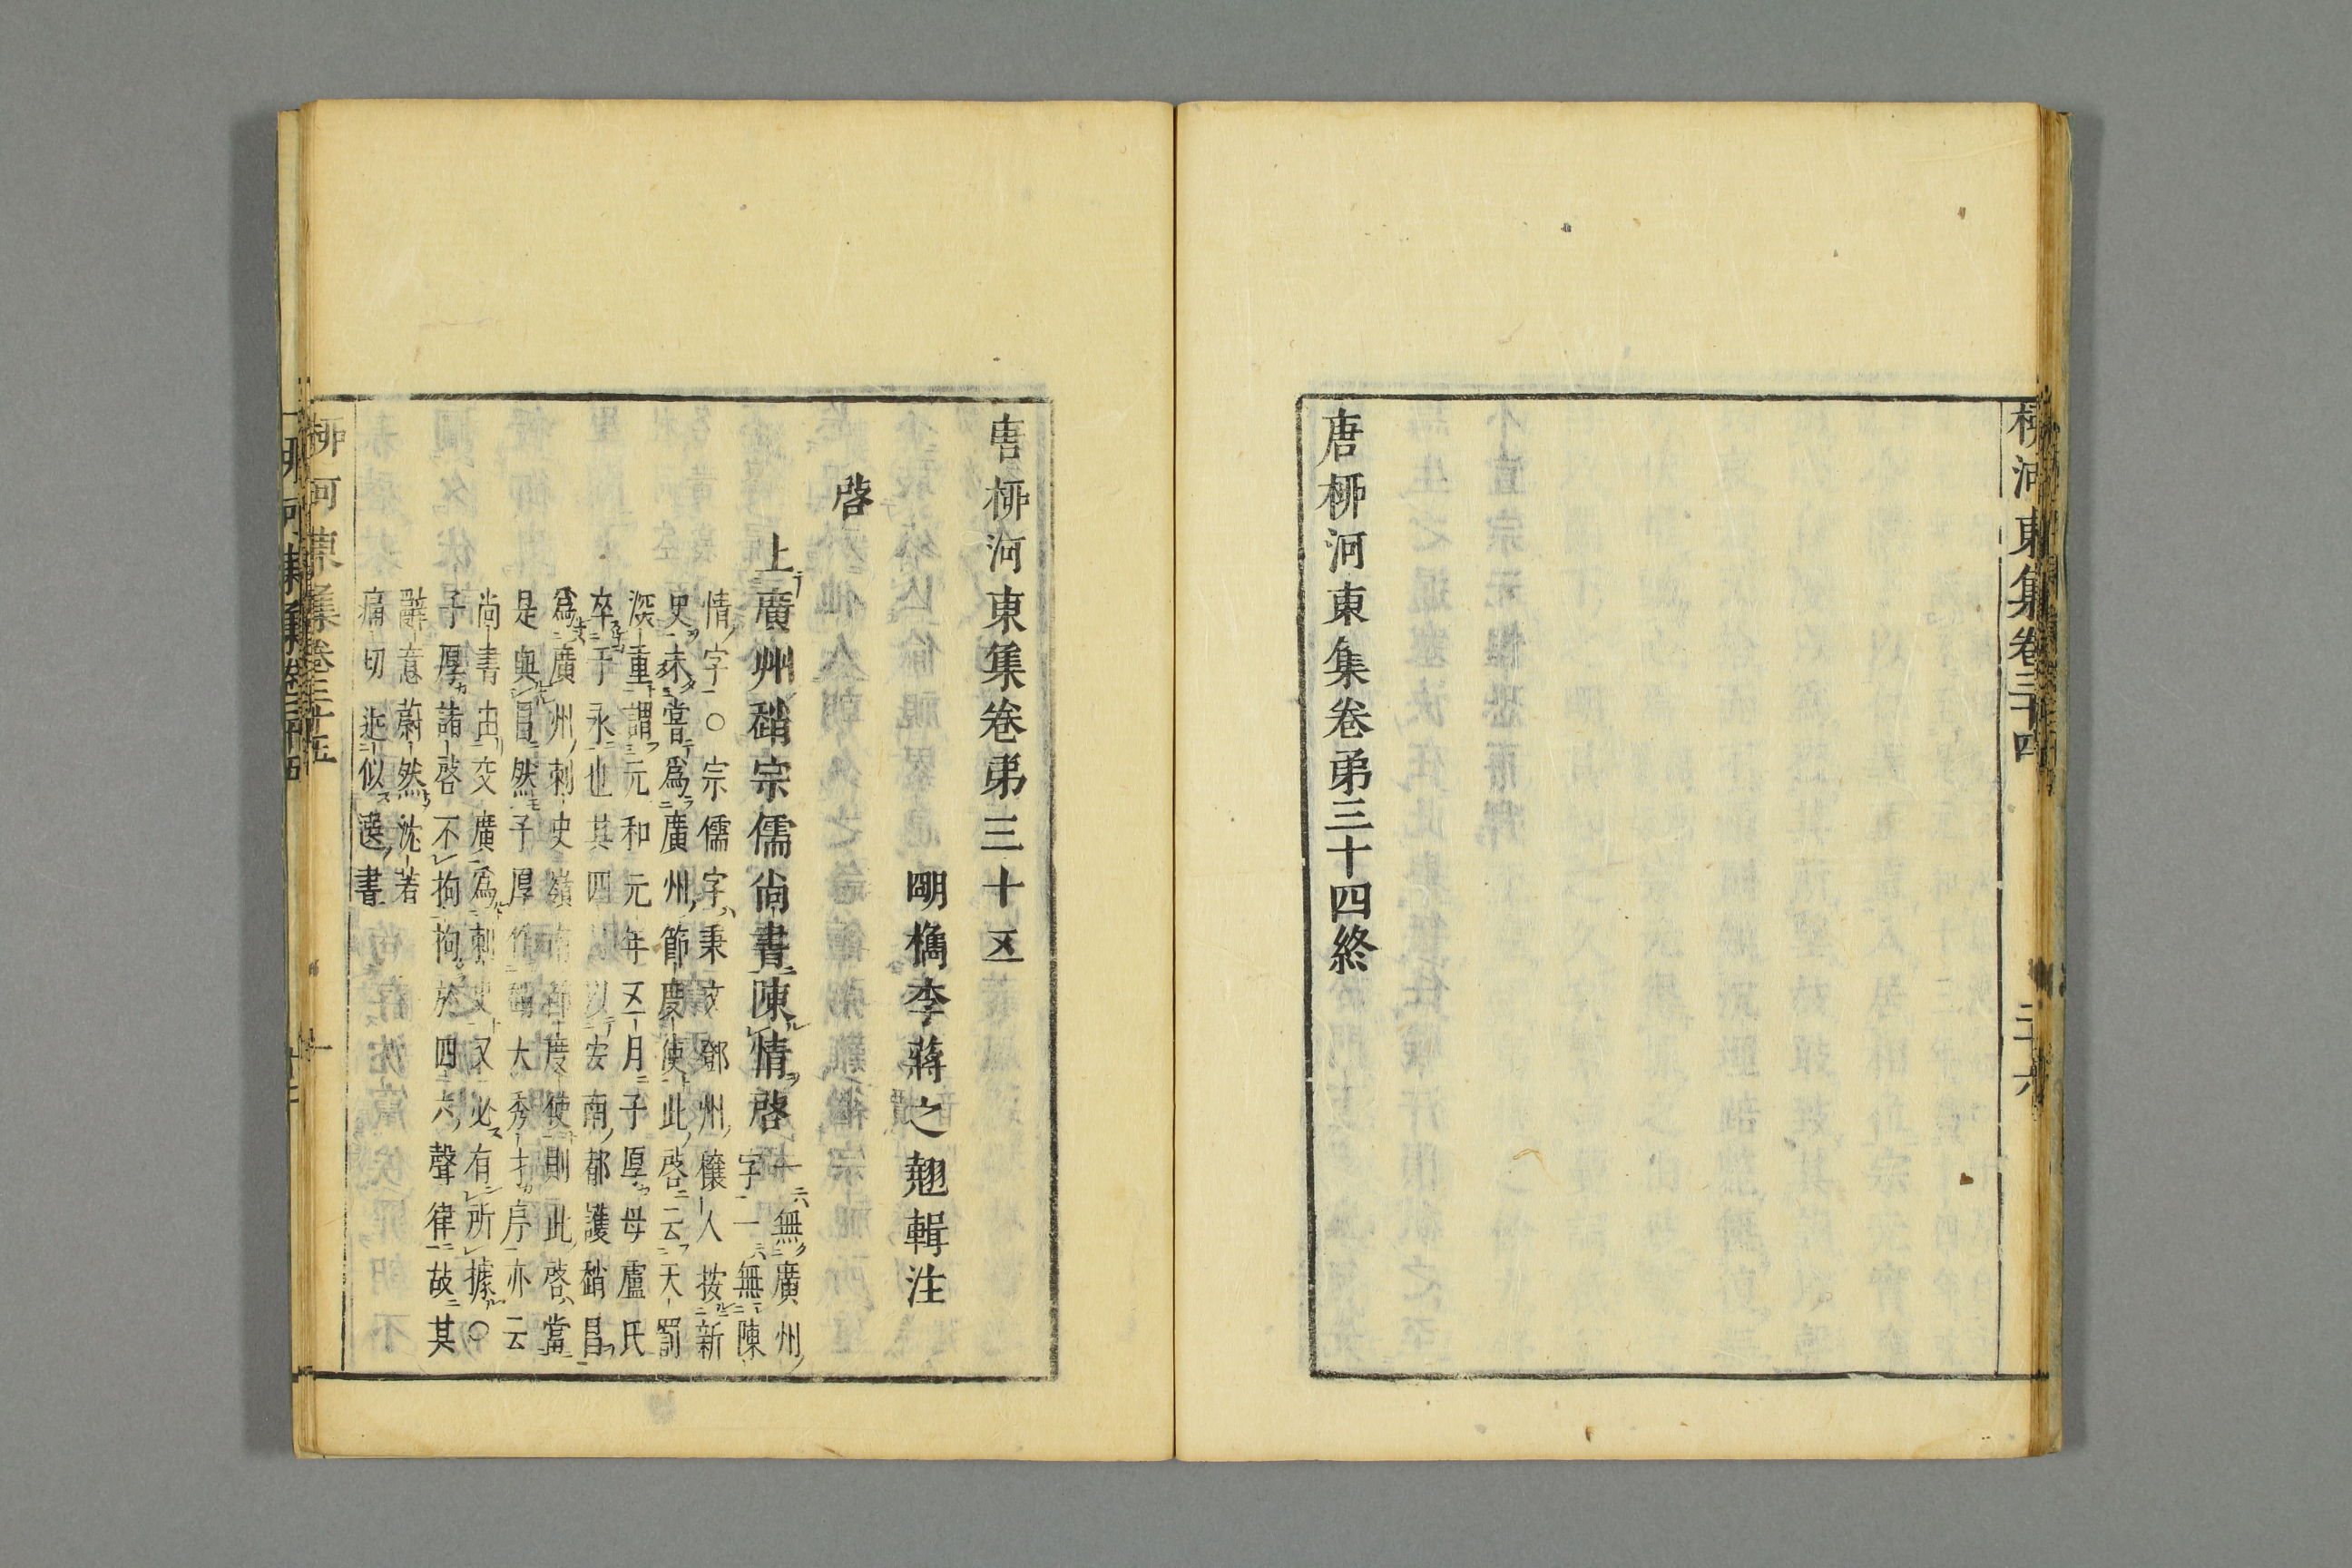 柳河東集卷三十四
三十六
唐柳河東集卷弟三十四終
唐柳河東集卷弟三十五
明檇李蔣之翹輯注
啓
上廣州趙宗儒尚書陳情啓
一無廣州
字一無陳
情字○宗儒字秉文鄧州穰人按新
史未嘗爲廣州節度使此啓云天罰
深重謂元和元年五月子厚母盧氏
卒于永也其四以安南都護趙昌
爲廣州刺史嶺南節度使則此啓當
是與昌然子厚作大秀才序亦云
尚書由交廣爲刺史又必有所據○
子厚諸啓不拘拘於四六聲律故其
辭意蔚然沈若
痛切逊似遷書
柳河東集卷三十五
一